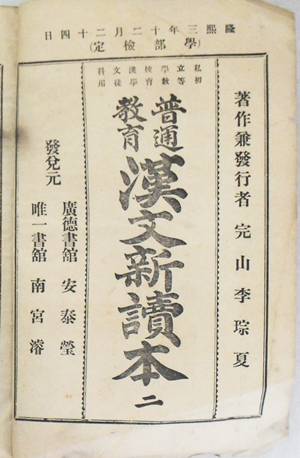 隆熙三年十二月二十四日
(學部檢定)
著作兼發行者 完山 李琮夏
初等教育學徒用
私立學校漢文科
普通
教育
漢文新讀本 二
發兌元
廣德書舘 安泰瑩
唯一書舘 南宮濬